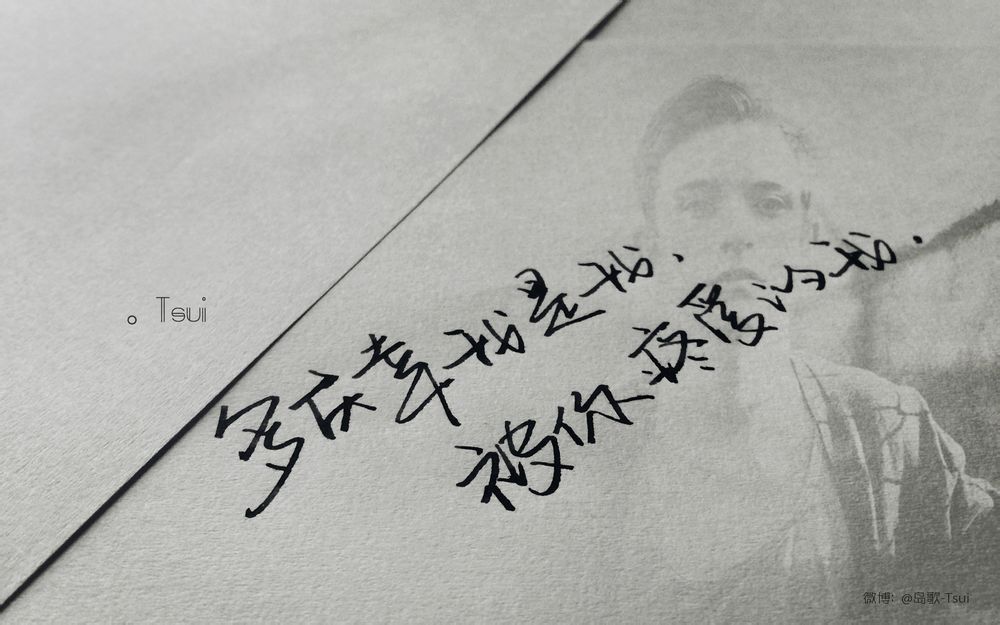 。Tsui
多庆幸我是我.
被你疼爱的我.
微博: @岛歌-Tsui